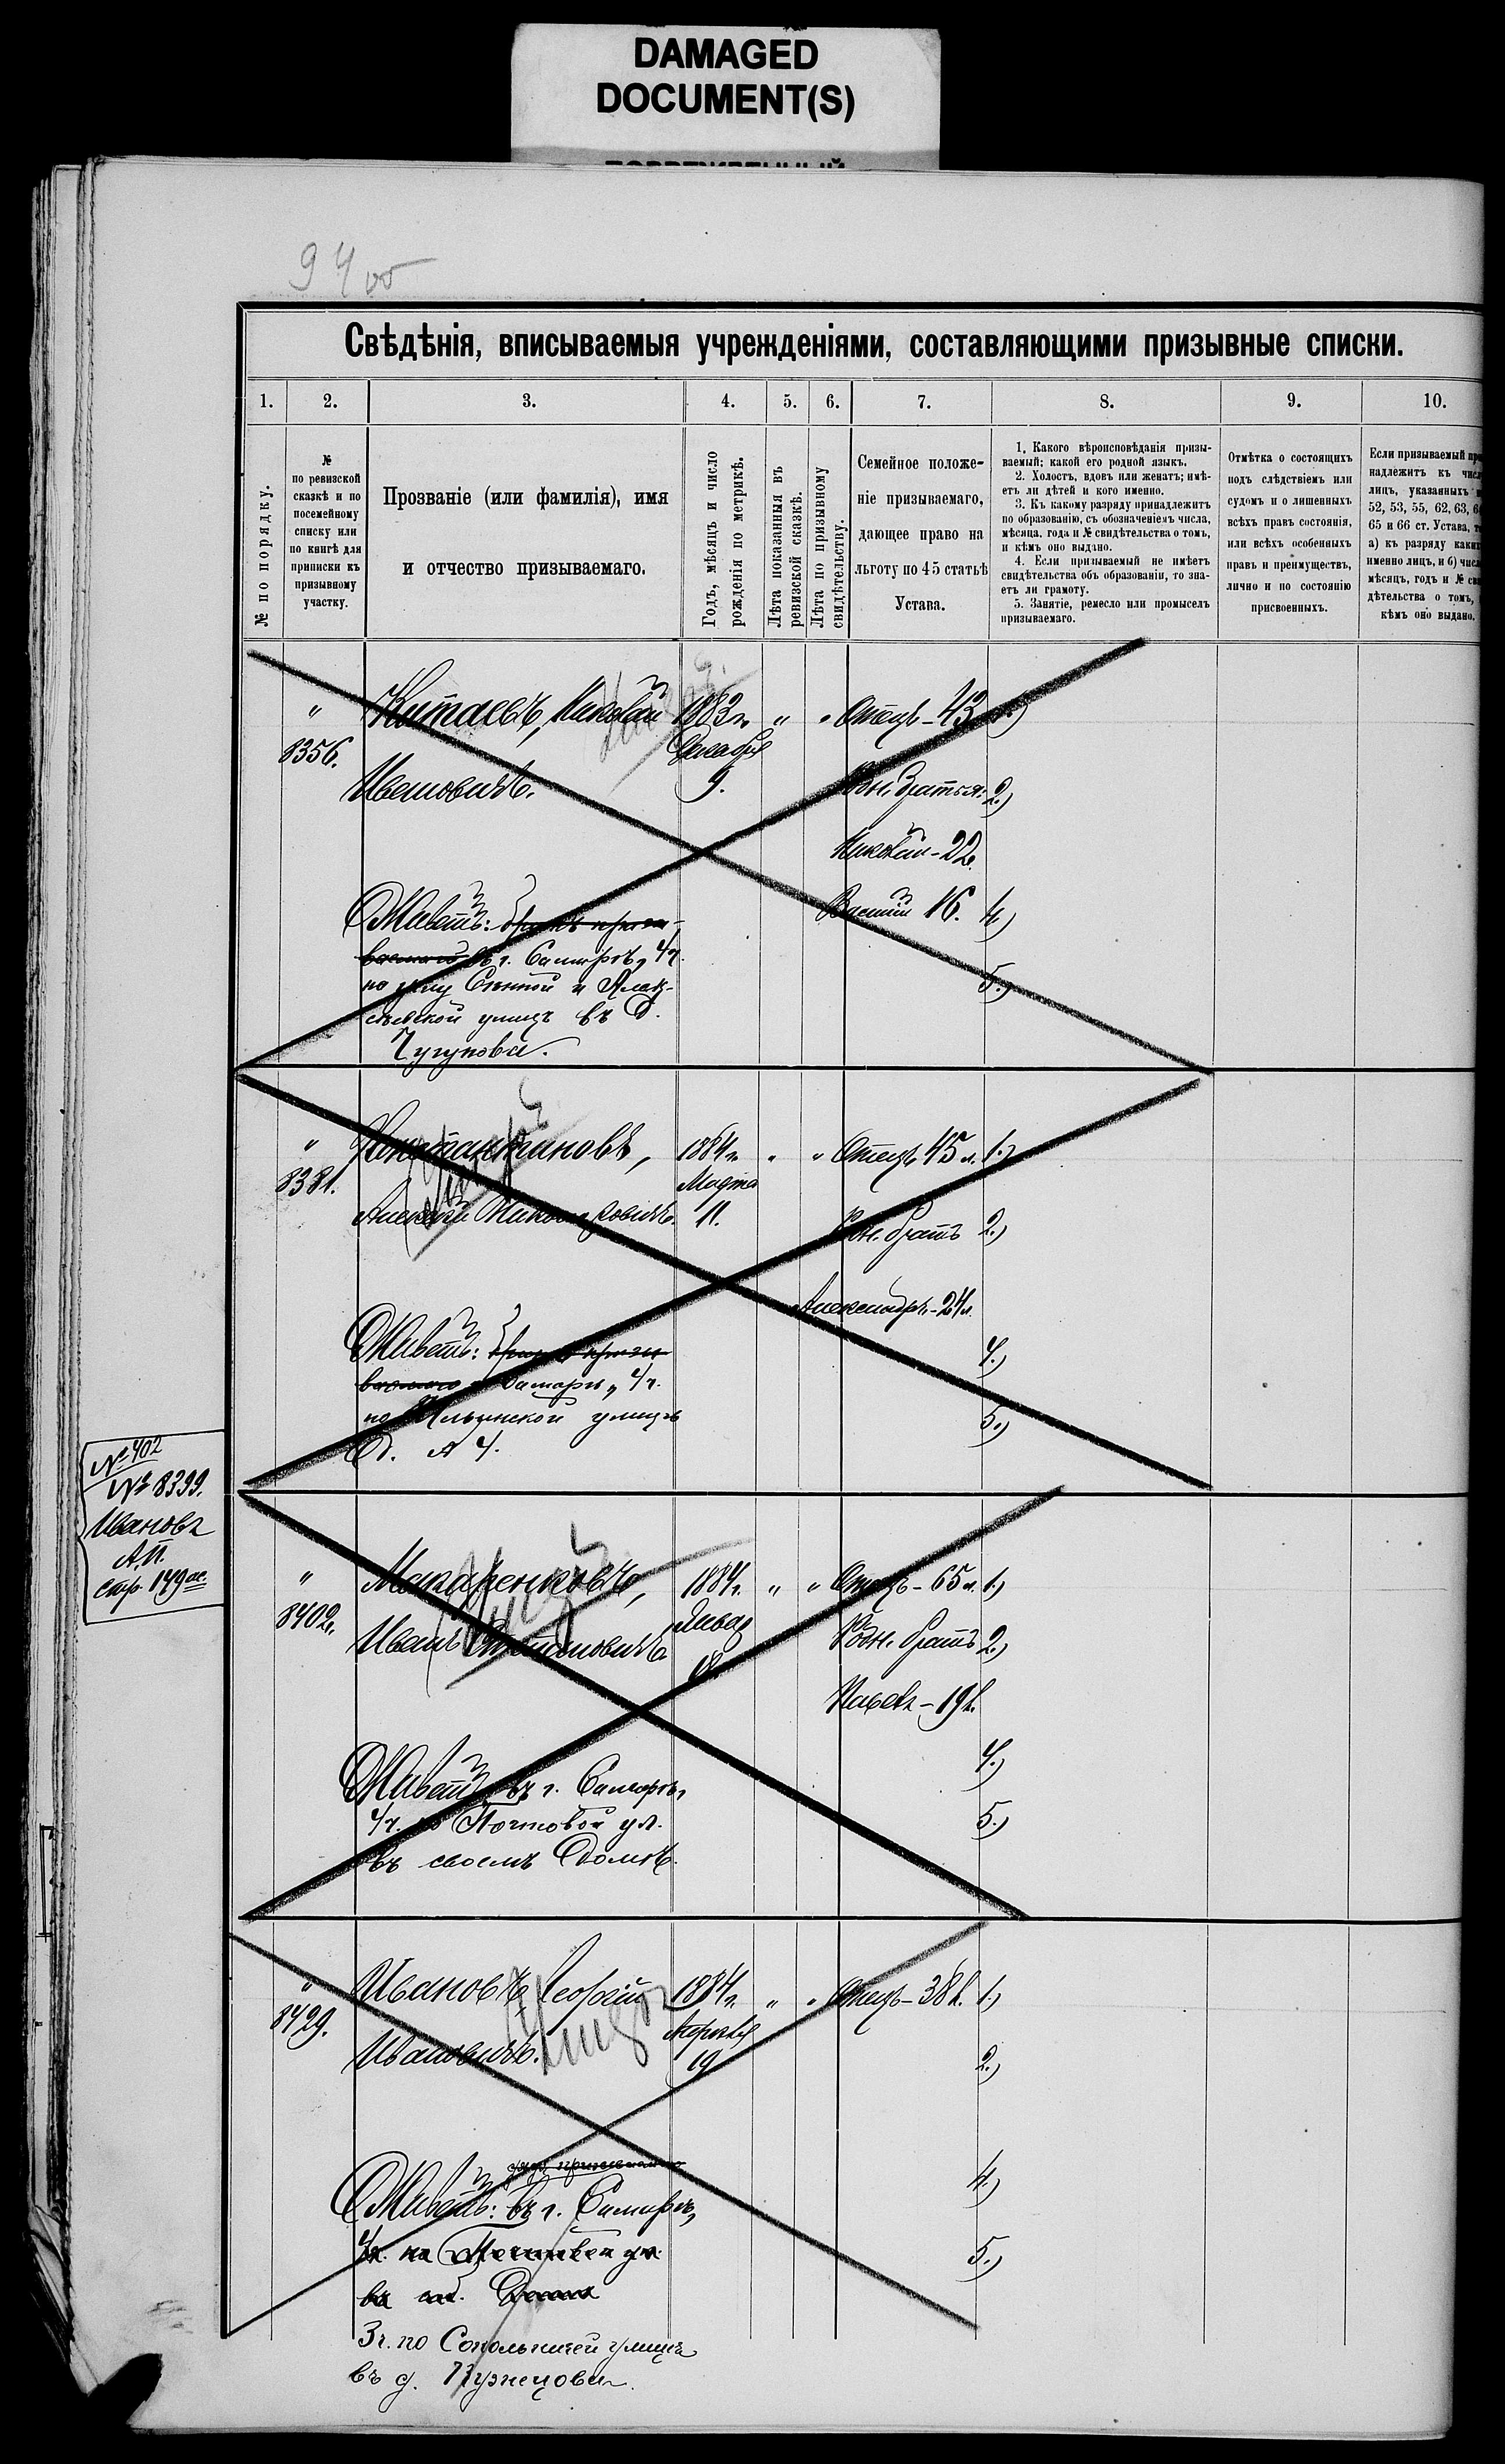 DAMAGED
DOCUMENT(S)
94 об
Свѣдѣнія, вписываемыя учрежденіями, составляющими призывные списки.
1. 2. 3. 4. 5. 6. 7. 8. 9. 10.
№ по порядку.
№
по ревизской
сказкѣ и по
посемейному
списку или
по книгѣ для
приписки къ
призывному
участку.
Прозваніе (или фамилія), имя
и отчество призываемаго.
Годъ, мѣсяцъ и число
рожденія по метрикѣ.
Лѣта показанныя въ
ревизской сказкѣ.
Лѣта по призывному
свидѣтельству.
Семейное положе-
ніе призываемаго,
дающее право на
льготу по 45 статьѣ
Устава.
1. Какого вѣроисповѣданія призы-
ваемый; какой его родной языкъ.
2. Холостъ, вдовъ или женатъ; имѣ-
етъ ли дѣтей и кого именно.
3. Къ какому разряду принадлежитъ
по образованію, съ обозначеніемъ числа,
мѣсяца, года и № свидѣтельства о томъ,
и кѣмъ оно выдано.
4. Если призываемый не имѣетъ
свидѣтельства объ образованіи, то зна-
етъ ли грамоту.
5. Занятіе, ремесло или промыселъ
призываемаго.
Отмѣтка о состоящихъ
подъ слѣдствіемъ или
судомъ и о лишенныхъ
всѣхъ правъ состоянія,
или всѣхъ особенныхъ
правъ и преимуществъ,
лично и по состоянію
присвоенныхъ.
Если призываемый
надлежитъ къ
лицъ, указанныхъ
52, 53, 55, 62, 63,
65 и 66 ст. Устава,
а) къ разряду
именно лицъ, и б)
мѣсяцъ, годъ и №
дѣтельства о томъ,
кѣмъ оно выдано.
" Китаевъ, Николай 1883 г. " " Отецъ - 43 1.)
8356. Декабря
Ивановичъ. 9. Родн. братья: 2.)
Николай - 22.
Василій 16. 4.)
Живетъ:
въ г. Самарѣ, 4 ч.
по углу Сѣнной и Алек-
сѣевской улицъ въ д. 5.)
Чугунова.
" Константиновъ, 1884 г. " " Отецъ 45 л. 1.)
8381. Марта
Алексѣй 11. Родн. братъ 2.)
Александръ - 24 л.
Живетъ: 4.)
Самарѣ, 4 ч.
по Ильинской улицѣ 5.)
д. № 4.
№ 402
№ 8399.
Ивановъ
А. П.
стр. 149 об.
" Макаренковъ, 1884 г. " " Отецъ - 65 л. 1.)
8402. Январ
Иванъ 18. Родн. братъ 2.)
Павелъ - 19 л.
4.)
Живетъ въ г. Самарѣ,
4 ч. по Почтовой ул. 5.)
въ своемъ домѣ.
" Ивановъ, Георгій 1884 г. " " Отецъ - 38 л. 1.)
8429. Апрѣля
Ивановичъ. 19 2.)
Живетъ: въ г. Самарѣ, 4.)
4 ч. по Почтовой ул. 5.)
3 ч. по Сокольничей улицѣ
въ д. Кузнецова.